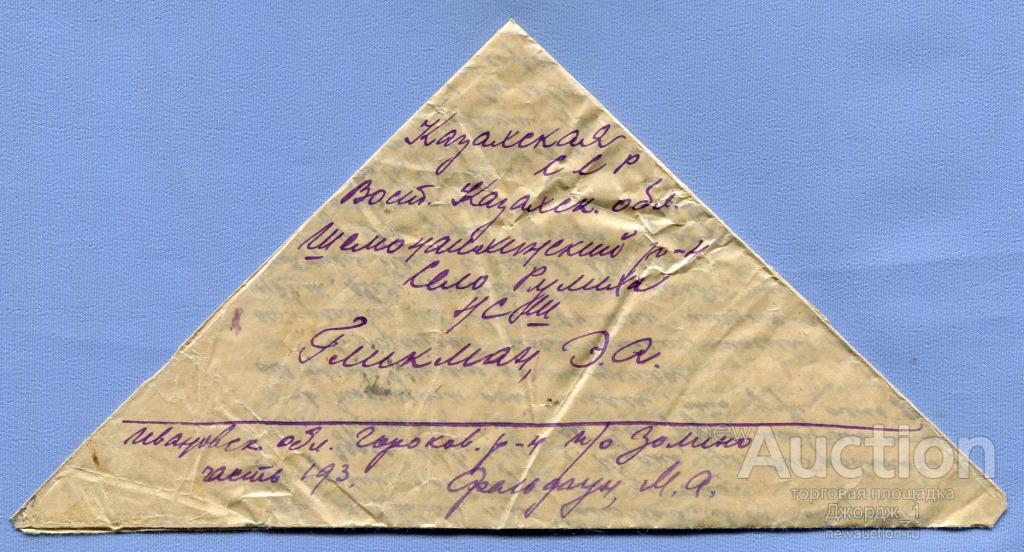 Казахская
ССР
Вост. Казахск. обл.
Шемонаихинский р-н
Село Румиха
НСШ
Гликман, Э.А.
Ивановск. обл. Гороков. р-н п/о Золино
часть 193.
М.А.
newAuction
торговая площадка
Джордж_1
newauction.ru